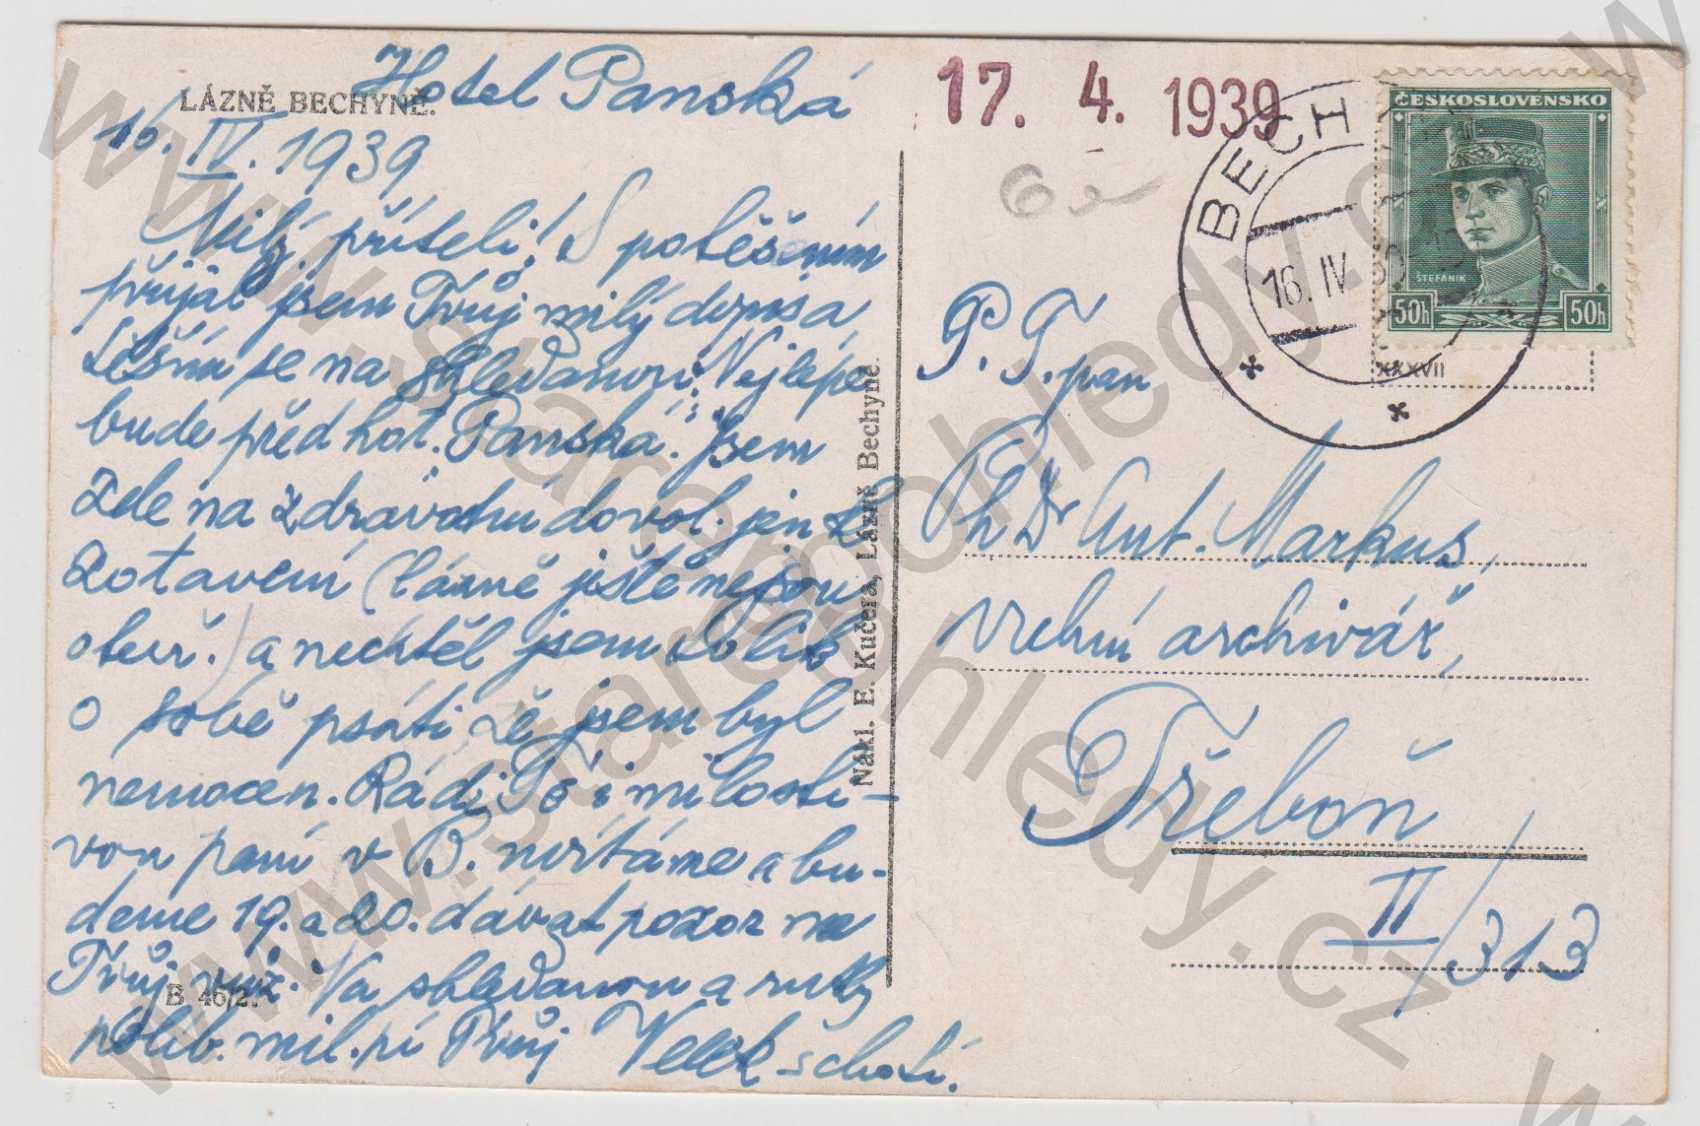 Hotel Panská
LÁZNĚ BECHYNĚ.
16. IV. 1939
Milý příteli! S potěšením
přijal jsem Tvůj milý dopis a
těším se na shledanou. Nejlépe
bude před hot. Panská. Jsem
zde na zdravotní dovol. jen k
zotavení (lázně ještě nejsou
otevř.) a nechtěl jsem tolik
o sobě psáti, že jsem byl
nemocen. Rádi Tě i milosti-
vou paní v B. uvítáme a bu-
deme 19. a 20. dávat pozor na
Tvůj vůz. Na shledanou a ruky
políb. mil. pí Tvůj Velek s chotí.
B 46/2.
Nákl. E. Kučera, Lázně Bechyně.
17. 4. 1939
BECH
16. IV. 39
ČESKOSLOVENSKO
ŠTEFÁNIK
50h 50h
XXXVII
P. T. pan
PhDr Ant. Markus,
vrchní archivář,
Třeboň
II/313
www.starepohledy.cz
www.starepohledy.cz